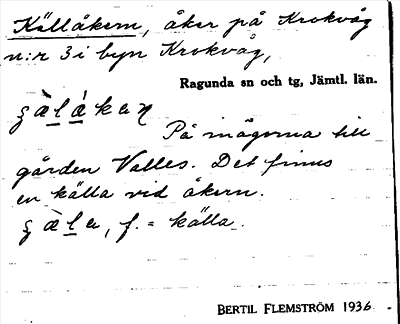 Källåkern, åker på Krokvåg
n:r 3 i byn Krokvåg,
Ragunda sn och tg, Jämtl. län.
På inägorna till
gården Valles. Det finns
en källa vid åkern.
f. = källa.
BERTIL FLEMSTRÖM 1936.